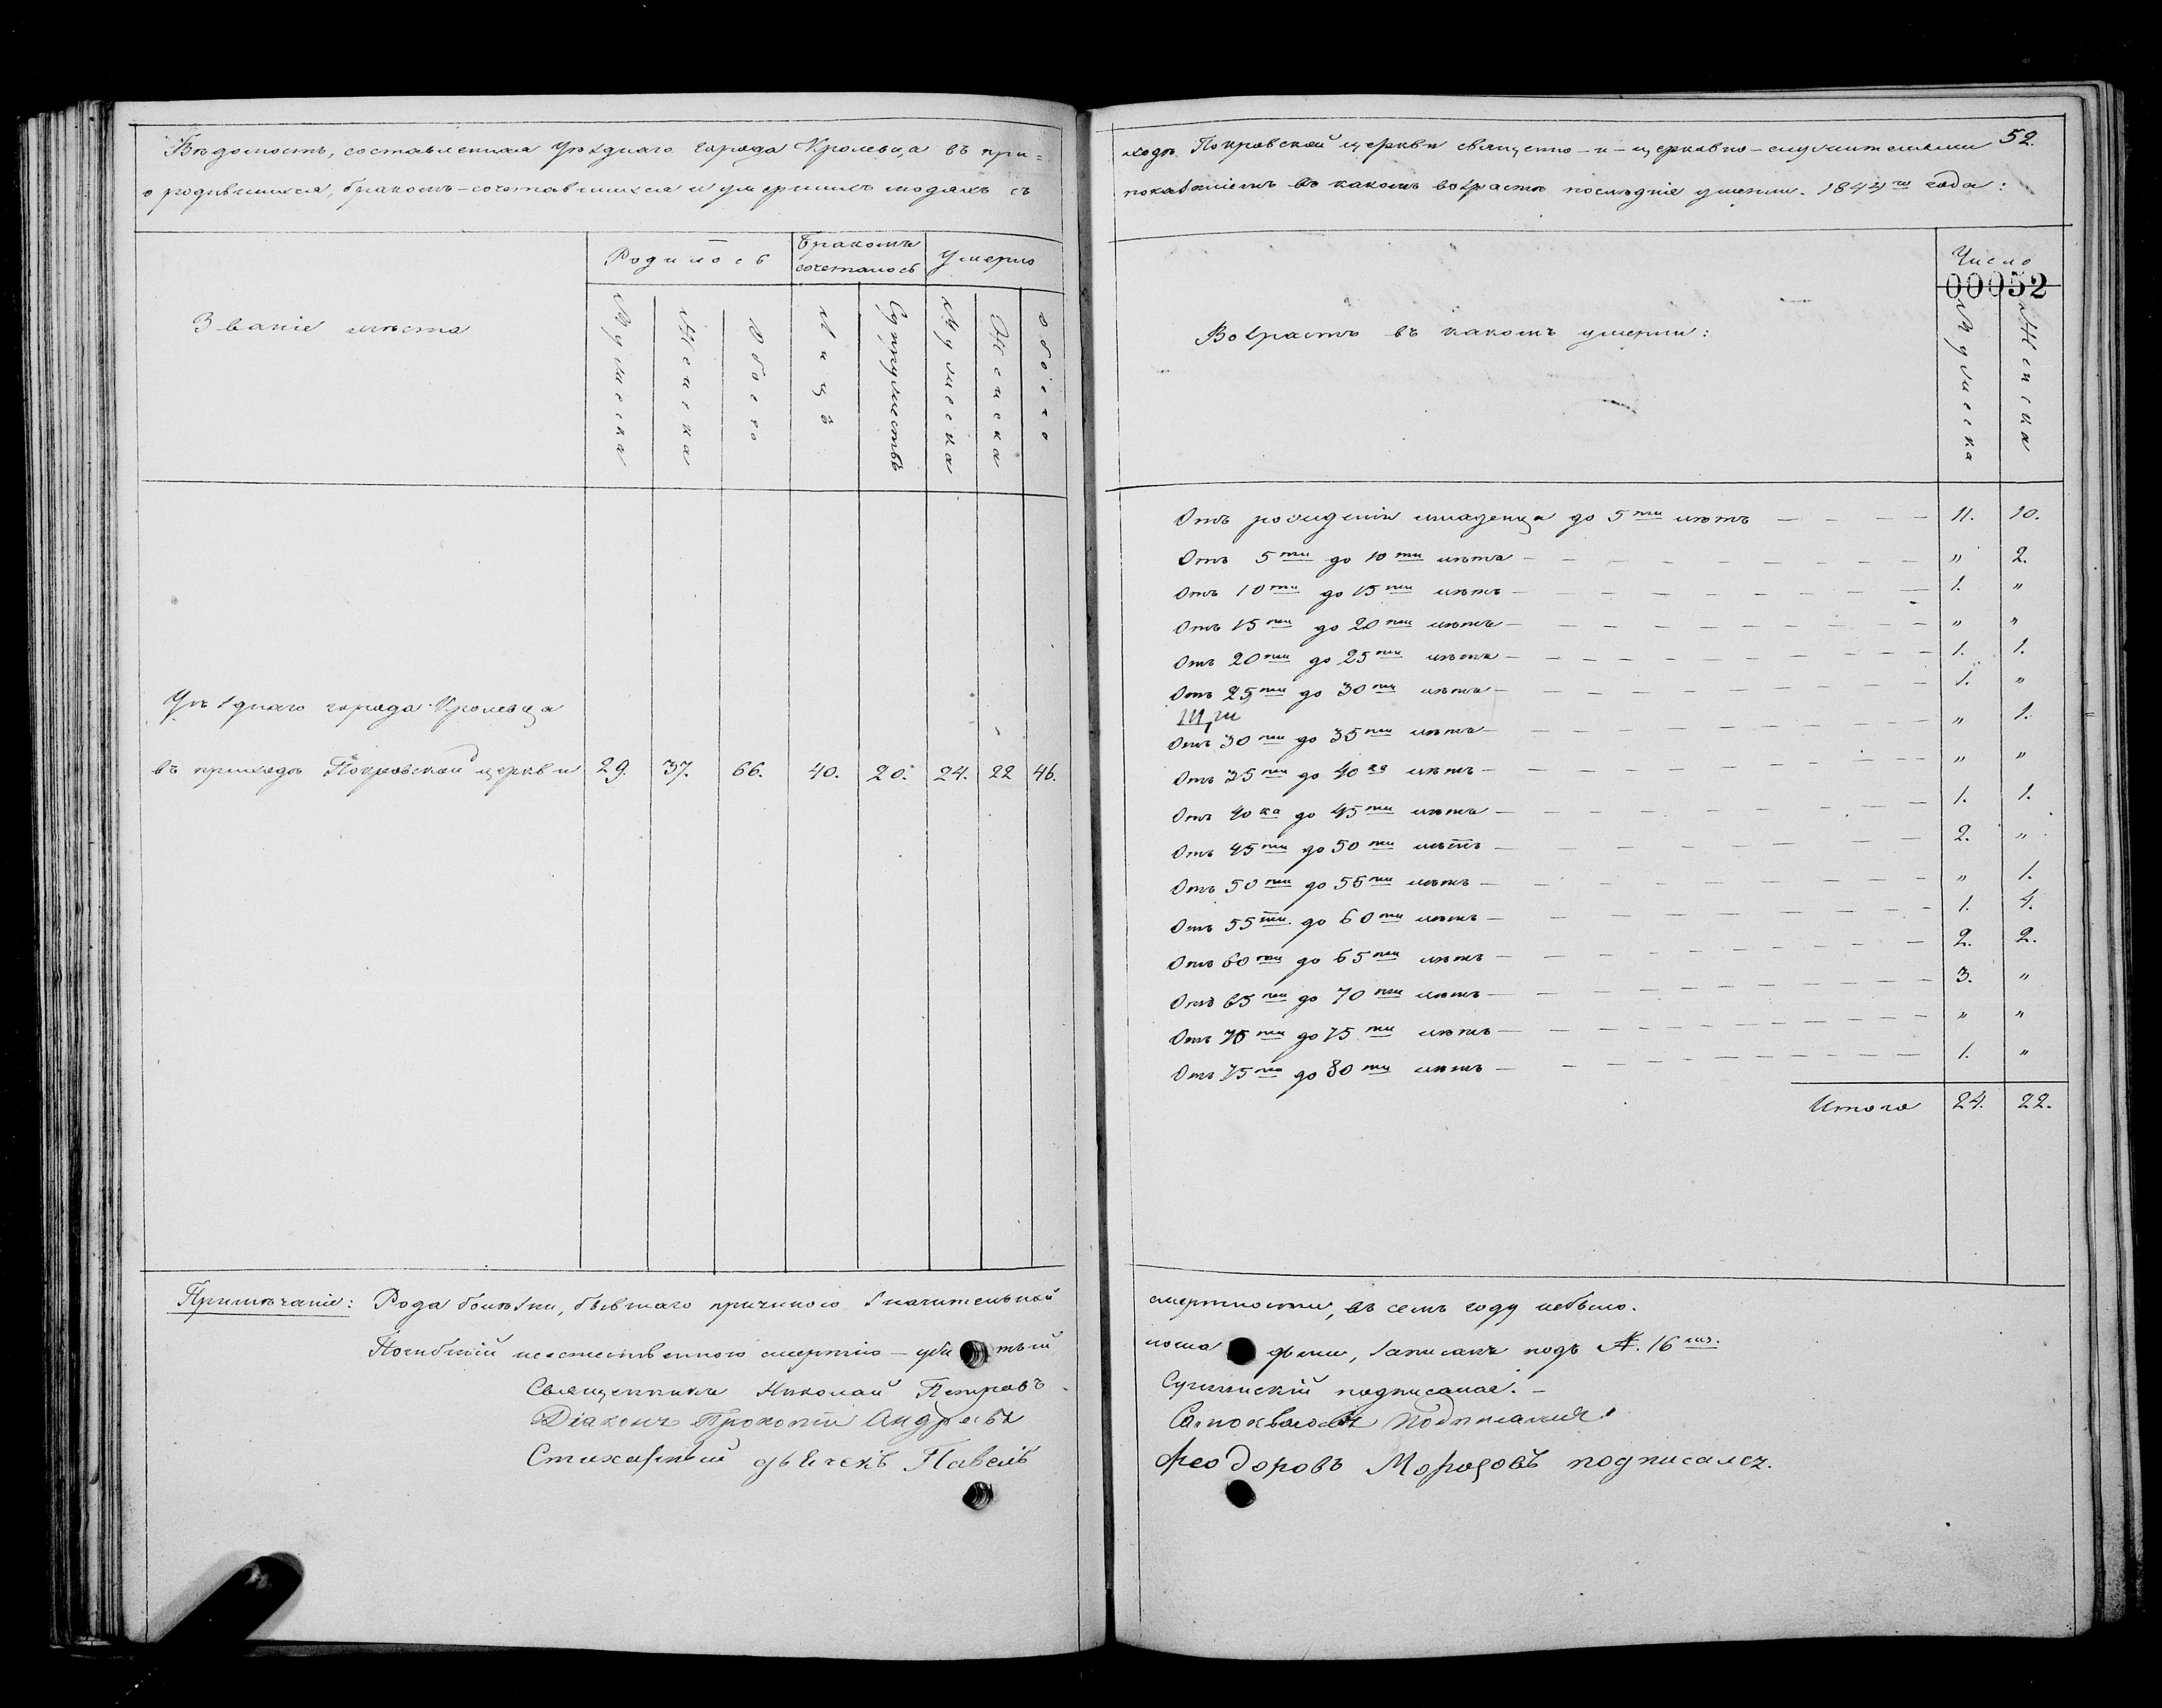 Вѣдомость, составленная уѣзднаго города Кролевца въ при=
о родившихся, бракомъ-сочетавшихся и умершихъ людяхъ съ
Званіе мѣста
Родилось
Бракомъ сочеталось
Умерло
Мужеска
Женска
Обоего
Лицъ
Супружествъ
Мужеска
Женска
Обоего
Уѣзднаго города Кролевца
въ приходѣ Покровской церкви 29. 37. 66. 40. 20. 24. 22 46.
Примѣчаніе: Рода болѣзни, бывшаго причиною значительной
Погибшій неестественною смертію —
Священникъ Николай Петровъ
Діаконъ Прокопій Андреевъ
Стихарный дьячекъ Павелъ
52.
ходѣ Покровской церкви священно-и-церковно-служителями
показаніемъ въ какомъ возрастѣ послѣдніе умерли. 1844го года:
Возрастъ въ какомъ умерли:
Число
00052
Мужеска
Женска
Отъ рожденія младенца до 5ти лѣтъ — 11. 10.
Отъ 5ти до 10ти лѣтъ — " 2.
Отъ 10ти до 15ти лѣтъ — 1. "
Отъ 15ти до 20ти лѣтъ — " "
Отъ 20ти до 25ти лѣтъ — 1. 1.
Отъ 25ти до 30ти лѣтъ — 1. "
Отъ 30ти до 35ти лѣтъ — " 1.
Отъ 35ти до 40ка лѣтъ — " "
Отъ 40ка до 45ти лѣтъ — 1. 1.
Отъ 45ти до 50ти лѣтъ — 2. "
Отъ 50ти до 55ти лѣтъ — " 1.
Отъ 55ти до 60ти лѣтъ — 1. 4.
Отъ 60ти до 65ти лѣтъ — 2. 2.
Отъ 65ти до 70ти лѣтъ — 3. "
Отъ 70ти до 75ти лѣтъ — " "
Отъ 75ти до 80ти лѣтъ — 1. "
Итого 24. 22.
смертности, въ семъ году небыло.
записанъ подъ №. 16
подписался.
Самоквасовъ подписался
Феодоровъ Морозовъ подписалсѧ.